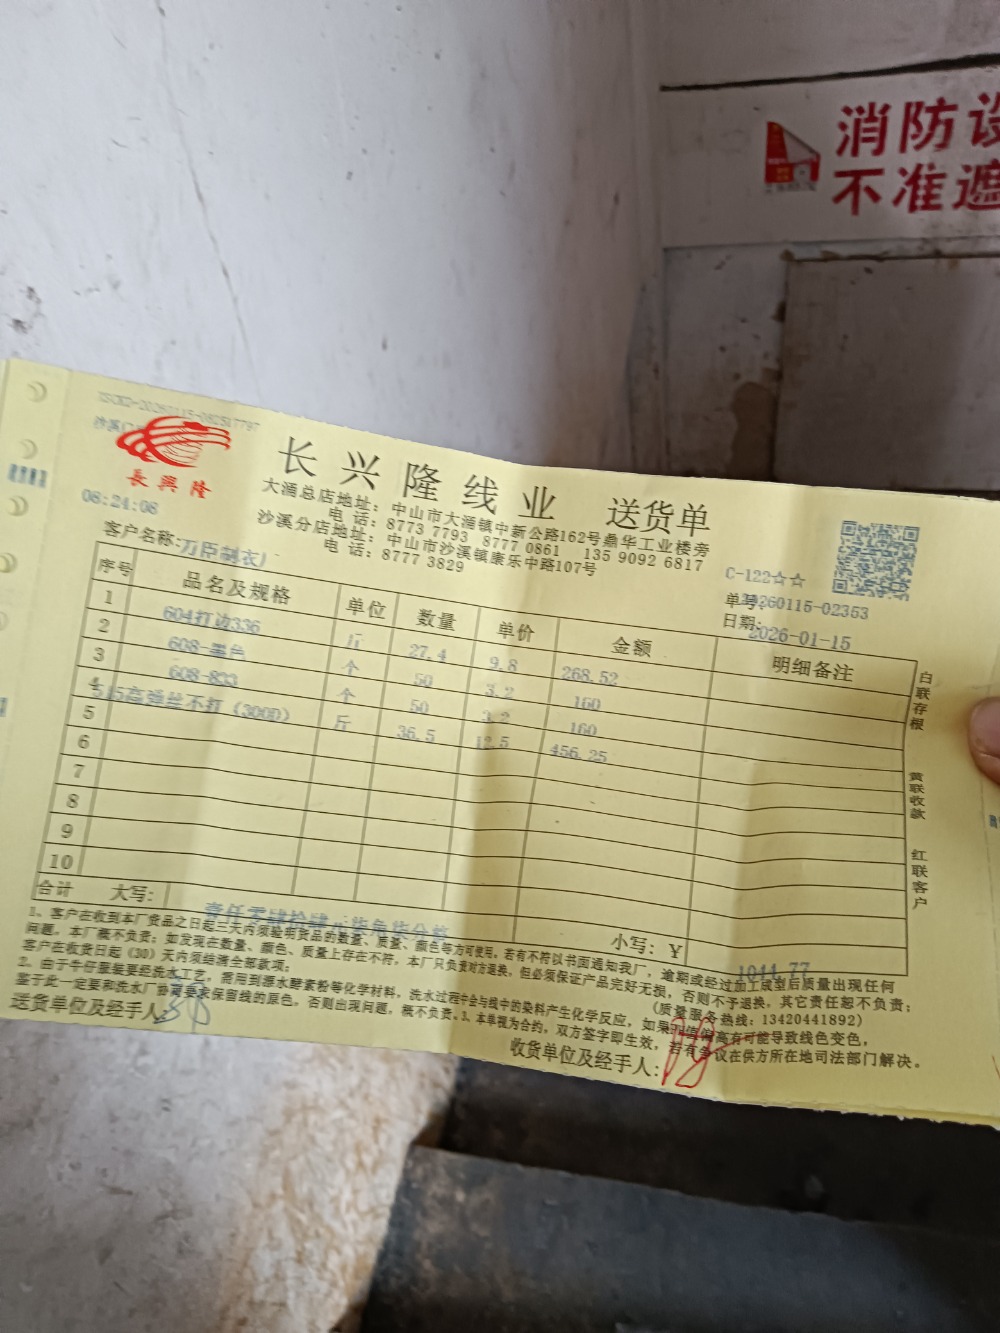 消防设
不准遮
XSCKD-20260115-082517797
沙溪
長興隆
08:24:08
长兴隆线业 送货单
大涌总店地址：中山市大涌镇中新公路162号鼎华工业楼旁
电 话：8773 7793 8777 0861 135 9092 6817
沙溪分店地址：中山市沙溪镇康乐中路107号
电 话：8777 3829
C-122☆☆
单号 20260115-02353
日期: 2026-01-15
客户名称: 万臣制衣厂
序号 品名及规格 单位 数量 单价 金额 明细备注
1 604打边336 斤 27.4 9.8 268.52
2 608-黑色 个 50 3.2 160
3 608-833 个 50 3.2 160
4 高弹丝不打（300D） 斤 36.5 12.5 456.25
5
6
7
8
9
10
合计 大写: 壹仟零肆拾肆元柒角柒分 小写：￥ 1044.77
白联存根
黄联收款
红联客户
1、客户在收到本厂货品之日起三天内须验明货品的数量、质量、颜色等方可使用。若有不符以书面通知我厂，逾期或经过加工成型后质量出现任何
问题，本厂概不负责；如发现在数量、颜色、质量上存在不符，本厂只负责对方退换，但必须保证产品完好无损，否则不予退换，其它责任恕不负责；
客户在收货日起（30）天内须结清全部款项；（质量服务热线：13420441892）
2、由于牛仔服装要经洗水工艺，需用到漂水酵素粉等化学材料，洗水过程中会与线中的染料产生化学反应，如果 值偏高有可能导致线色变色，
鉴于此一定要和洗水厂协商要求保留线的原色，否则出现问题，概不负责。3、本单视为合约，双方签字即生效，若有争议在供方所在地司法部门解决。
送货单位及经手人:
收货单位及经手人: